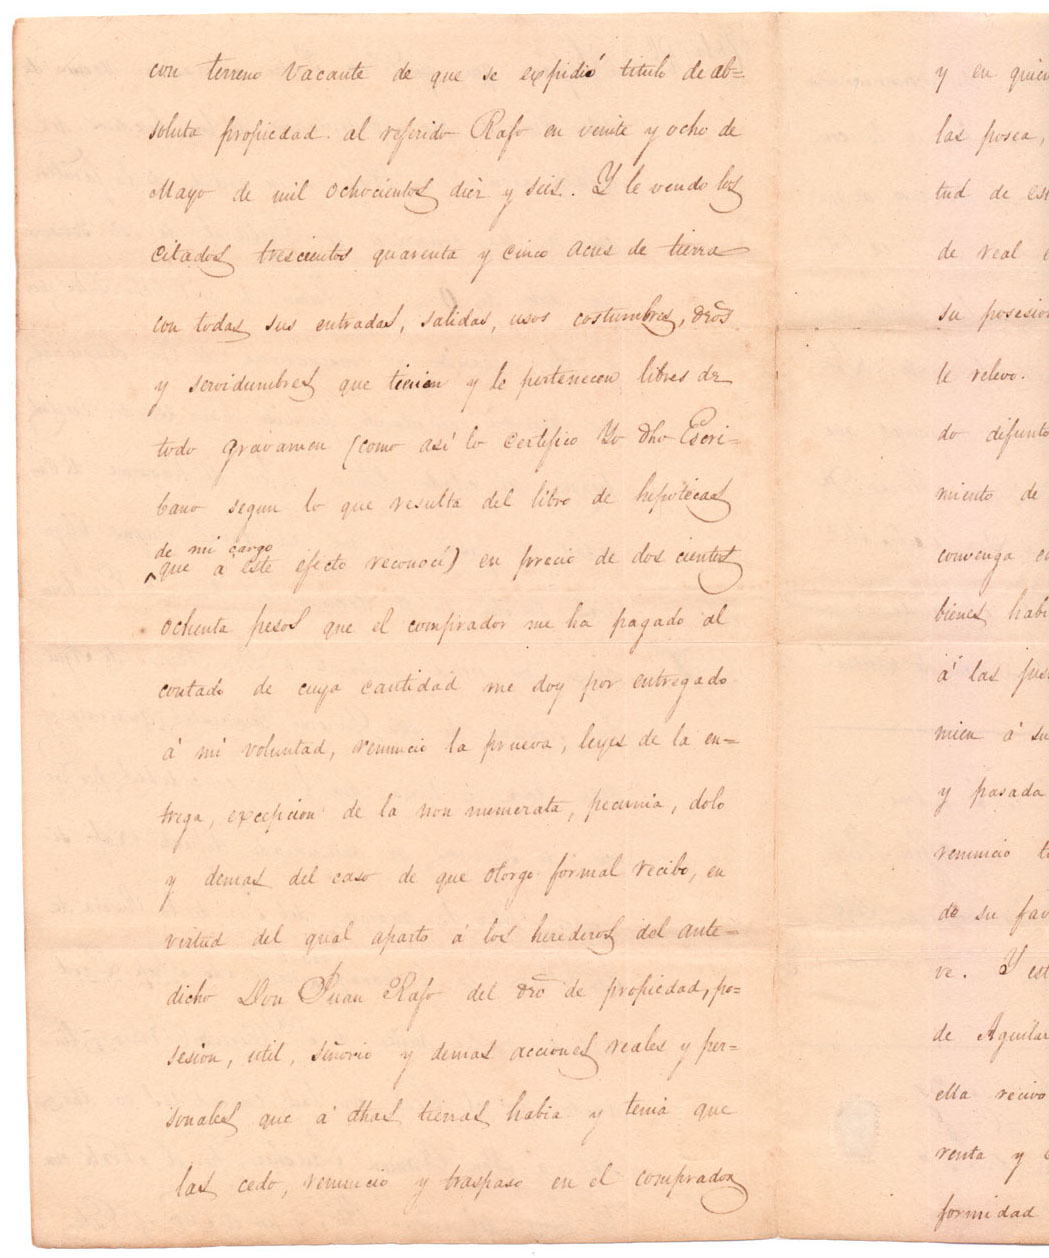 con terreno vacante de que se expidió titulo de ab=
soluta propiedad al referido Rafo en veinte y ocho de
Mayo de mil ochocientos diez y seis. Y le vendo los
citados trescientos quarenta y cinco acres de tierra
con todas sus entradas, salidas, usos costumbres, dros
y servidumbres que tienen y le pertenecen libres de
todo gravamen (como así lo certifico Yo dho Escri-
bano segun lo que resulta del libro de hipotecas
de mi cargo
que á este efecto reconocí) en precio de dos cientos
ochenta pesos que el comprador me ha pagado al
contado de cuya cantidad me doy por entregado
á mi voluntad, renuncio la prueva, leyes de la en=
trega, excepcion de la non numerata, pecunia, dolo
y demas del caso de que otorgo formal recibo, en
virtud del qual aparto á los herederos del ante=
dicho Don Juan Rafo del dro de propiedad, po=
sesion, util, señorio y demas acciones reales y per=
sonales que á dhas tierras habia y tenia que
las cedo, renuncio y traspaso en el comprador
y en quien
las posea,
tud de est
de real
su posesion
le relevo.
do difunto
miento de
convenga e
bienes habi
á las jus
mien á su
y pasada
renuncio t
do su fav
ve. Y est
de Aguilar
ella recivo
renta y
formidad